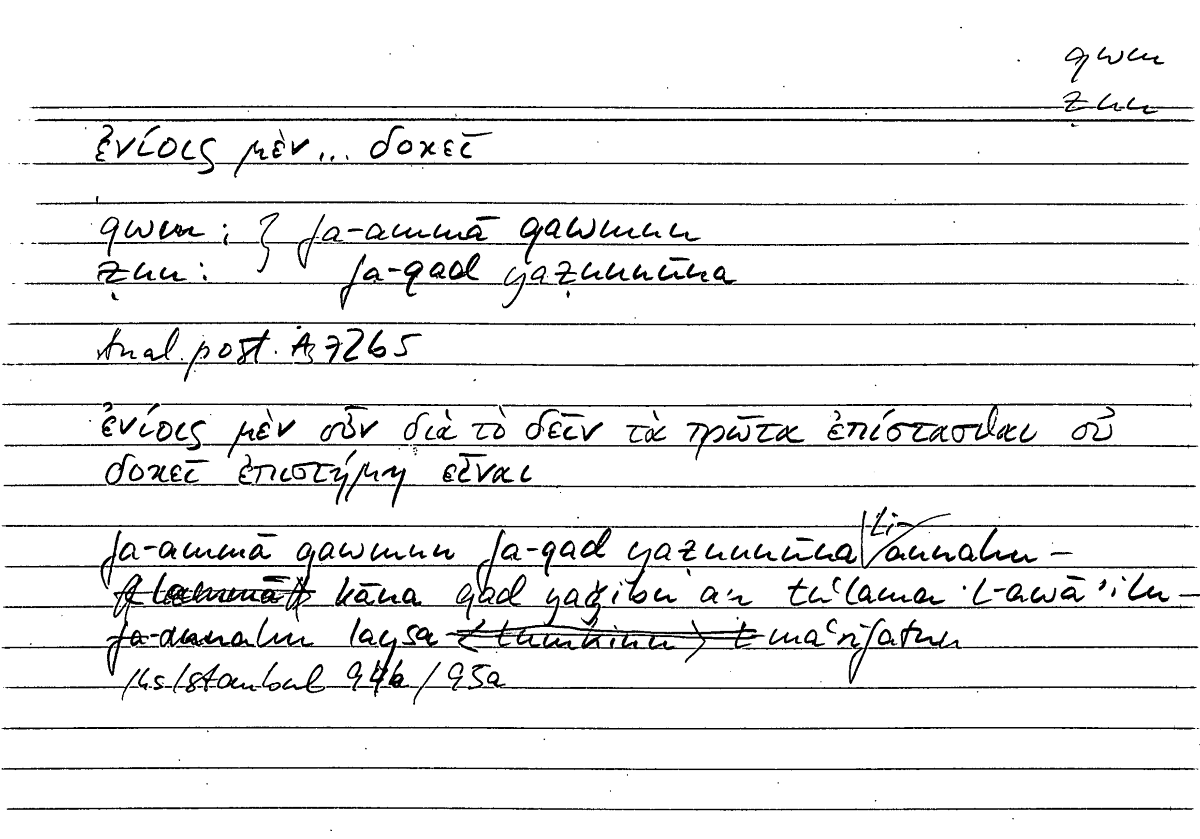 qwm
ẓnn
ἐνίοις μὲν... δοκεῖ
qwm : } fa-ammā qawmun
ẓnn : fa-qad yaẓunnūna
Anal. post. A3 72b5
ἐνίοις μὲν οὖν διὰ τὸ δεῖν τὰ πρῶτα ἐπίστασθαι οὐ
δοκεῖ ἐπιστήμη εἶναι
fa-ammā qawmun fa-qad yaẓunnūna li-annahu –
kāna qad yaǧibu an tuʿlama 'l-awāʾilu –
fa-annahu laysa maʿrifatun
Hs Istanbul 94b / 95a